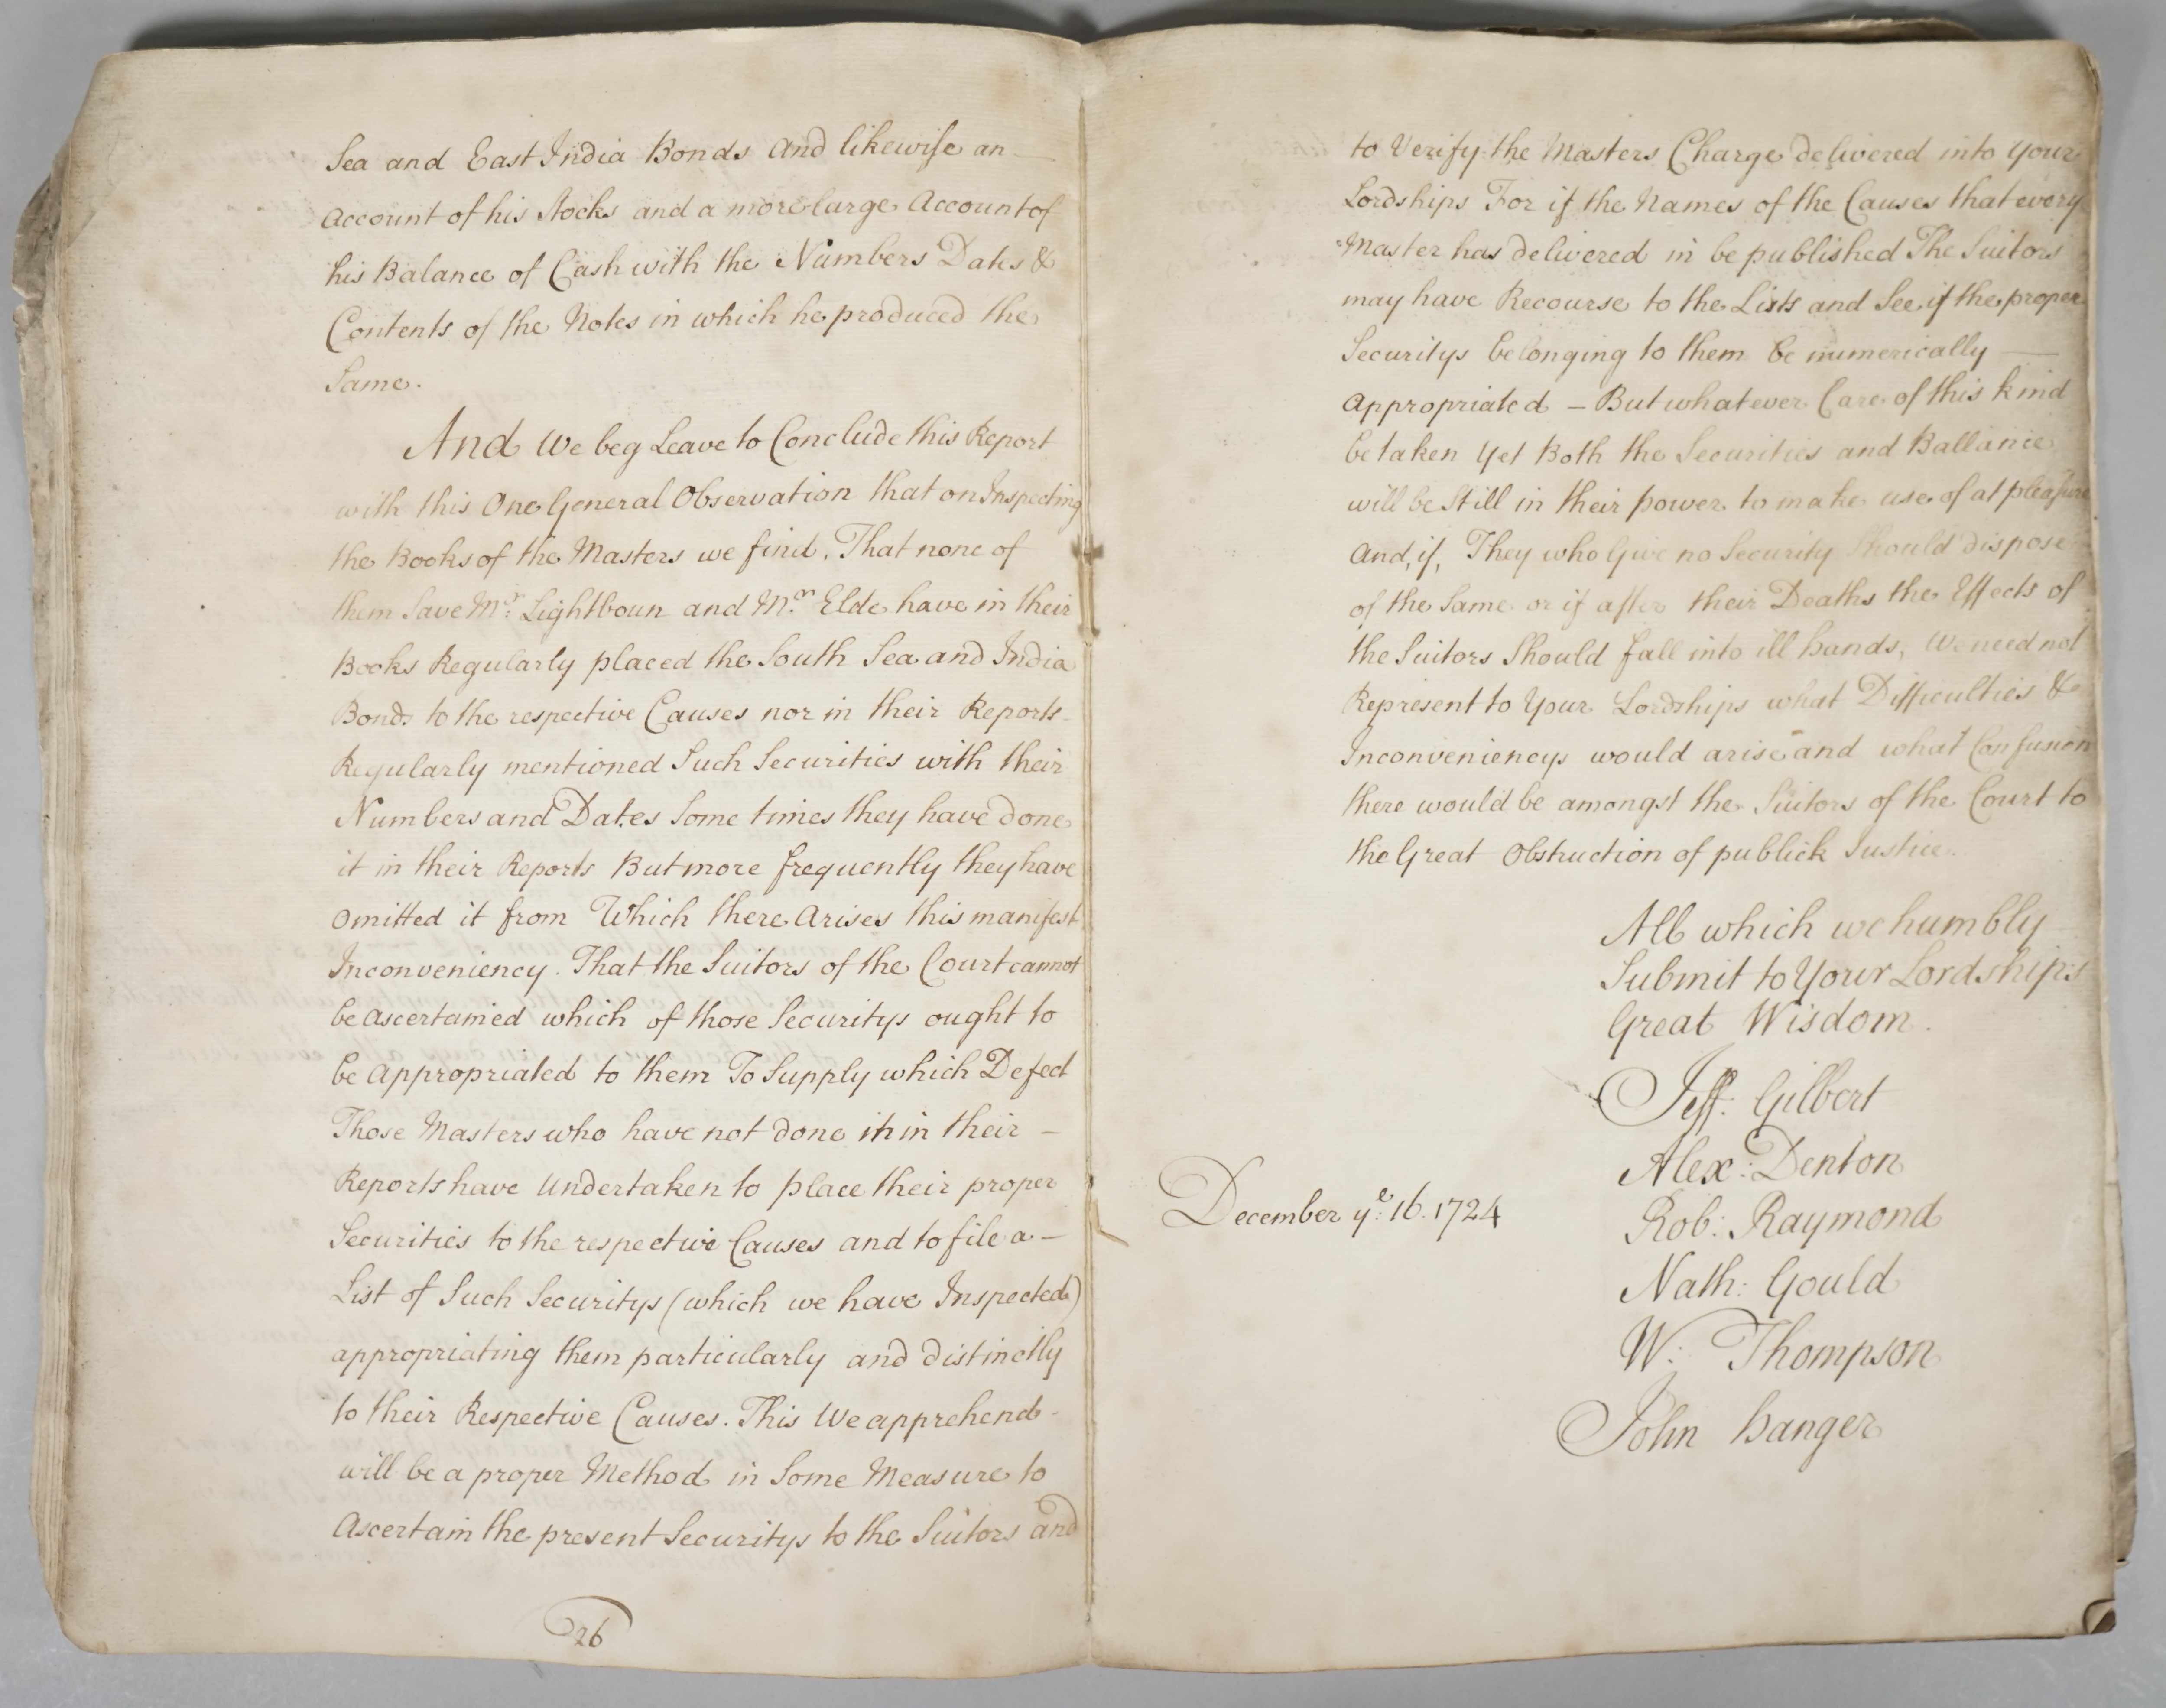 Sea and East India Bonds and likewise an
Account of his Stocks and a more large Account of
his Balance of Cash with the Numbers Dates &
Contents of the Notes in which he produced the
Same.
And We beg Leave to Conclude this Report
with this One General Observation that on Inspecting
the Books of the Masters we find, That none of
them Save Mr: Lightboun and Mr. Elde have in their
Books Regularly placed the South Sea and India
Bonds to the respective Causes nor in their Reports
Regularly mentioned Such Securities with their
Numbers and Dates Some times they have done
it in their Reports But more frequently they have
omitted it from Which there Arises this manifest
Inconveniency. That the Suitors of the Court cannot
be Ascertained which of those Securitys ought to
be Appropriated to them To Supply which Defect
Those Masters who have not done it in their –
Reports have Undertaken to place their proper
Securities to the respective Causes and to file a –
List of Such Securitys (which we have Inspected)
appropriating them particularly and distinctly
to their Respective Causes. This We apprehend
will be a proper Method in Some Measure to
Ascertain the present Securitys to the Suitors and
26
to Verify the Masters Charge delivered into Your
Lordships For if the Names of the Causes that every
Master has delivered in be published The Suitors
may have Recourse to the Lists and See if the proper
Securitys belonging to them be numerically —
Appropriated – But whatever Care of this kind
be taken Yet Both the Securities and Ballance
will be Still in their power to make use of at pleasure
And, if, They who Give no Security Should dispose
of the Same or if after their Deaths the Effects of
the Suitors Should fall into ill hands, We need not
Represent to Your Lordships what Difficulties &
Inconveniencys would arise and what Confusion
there would be amongst the Suitors of the Court to
the Great Obstruction of publick Justice.
All which we humbly
Submit to Your Lordships
Great Wisdom.
Jeff: Gilbert
Alex: Denton
December ye: 16. 1724
Rob: Raymond
Nath: Gould
W: Thompson
John Hanger